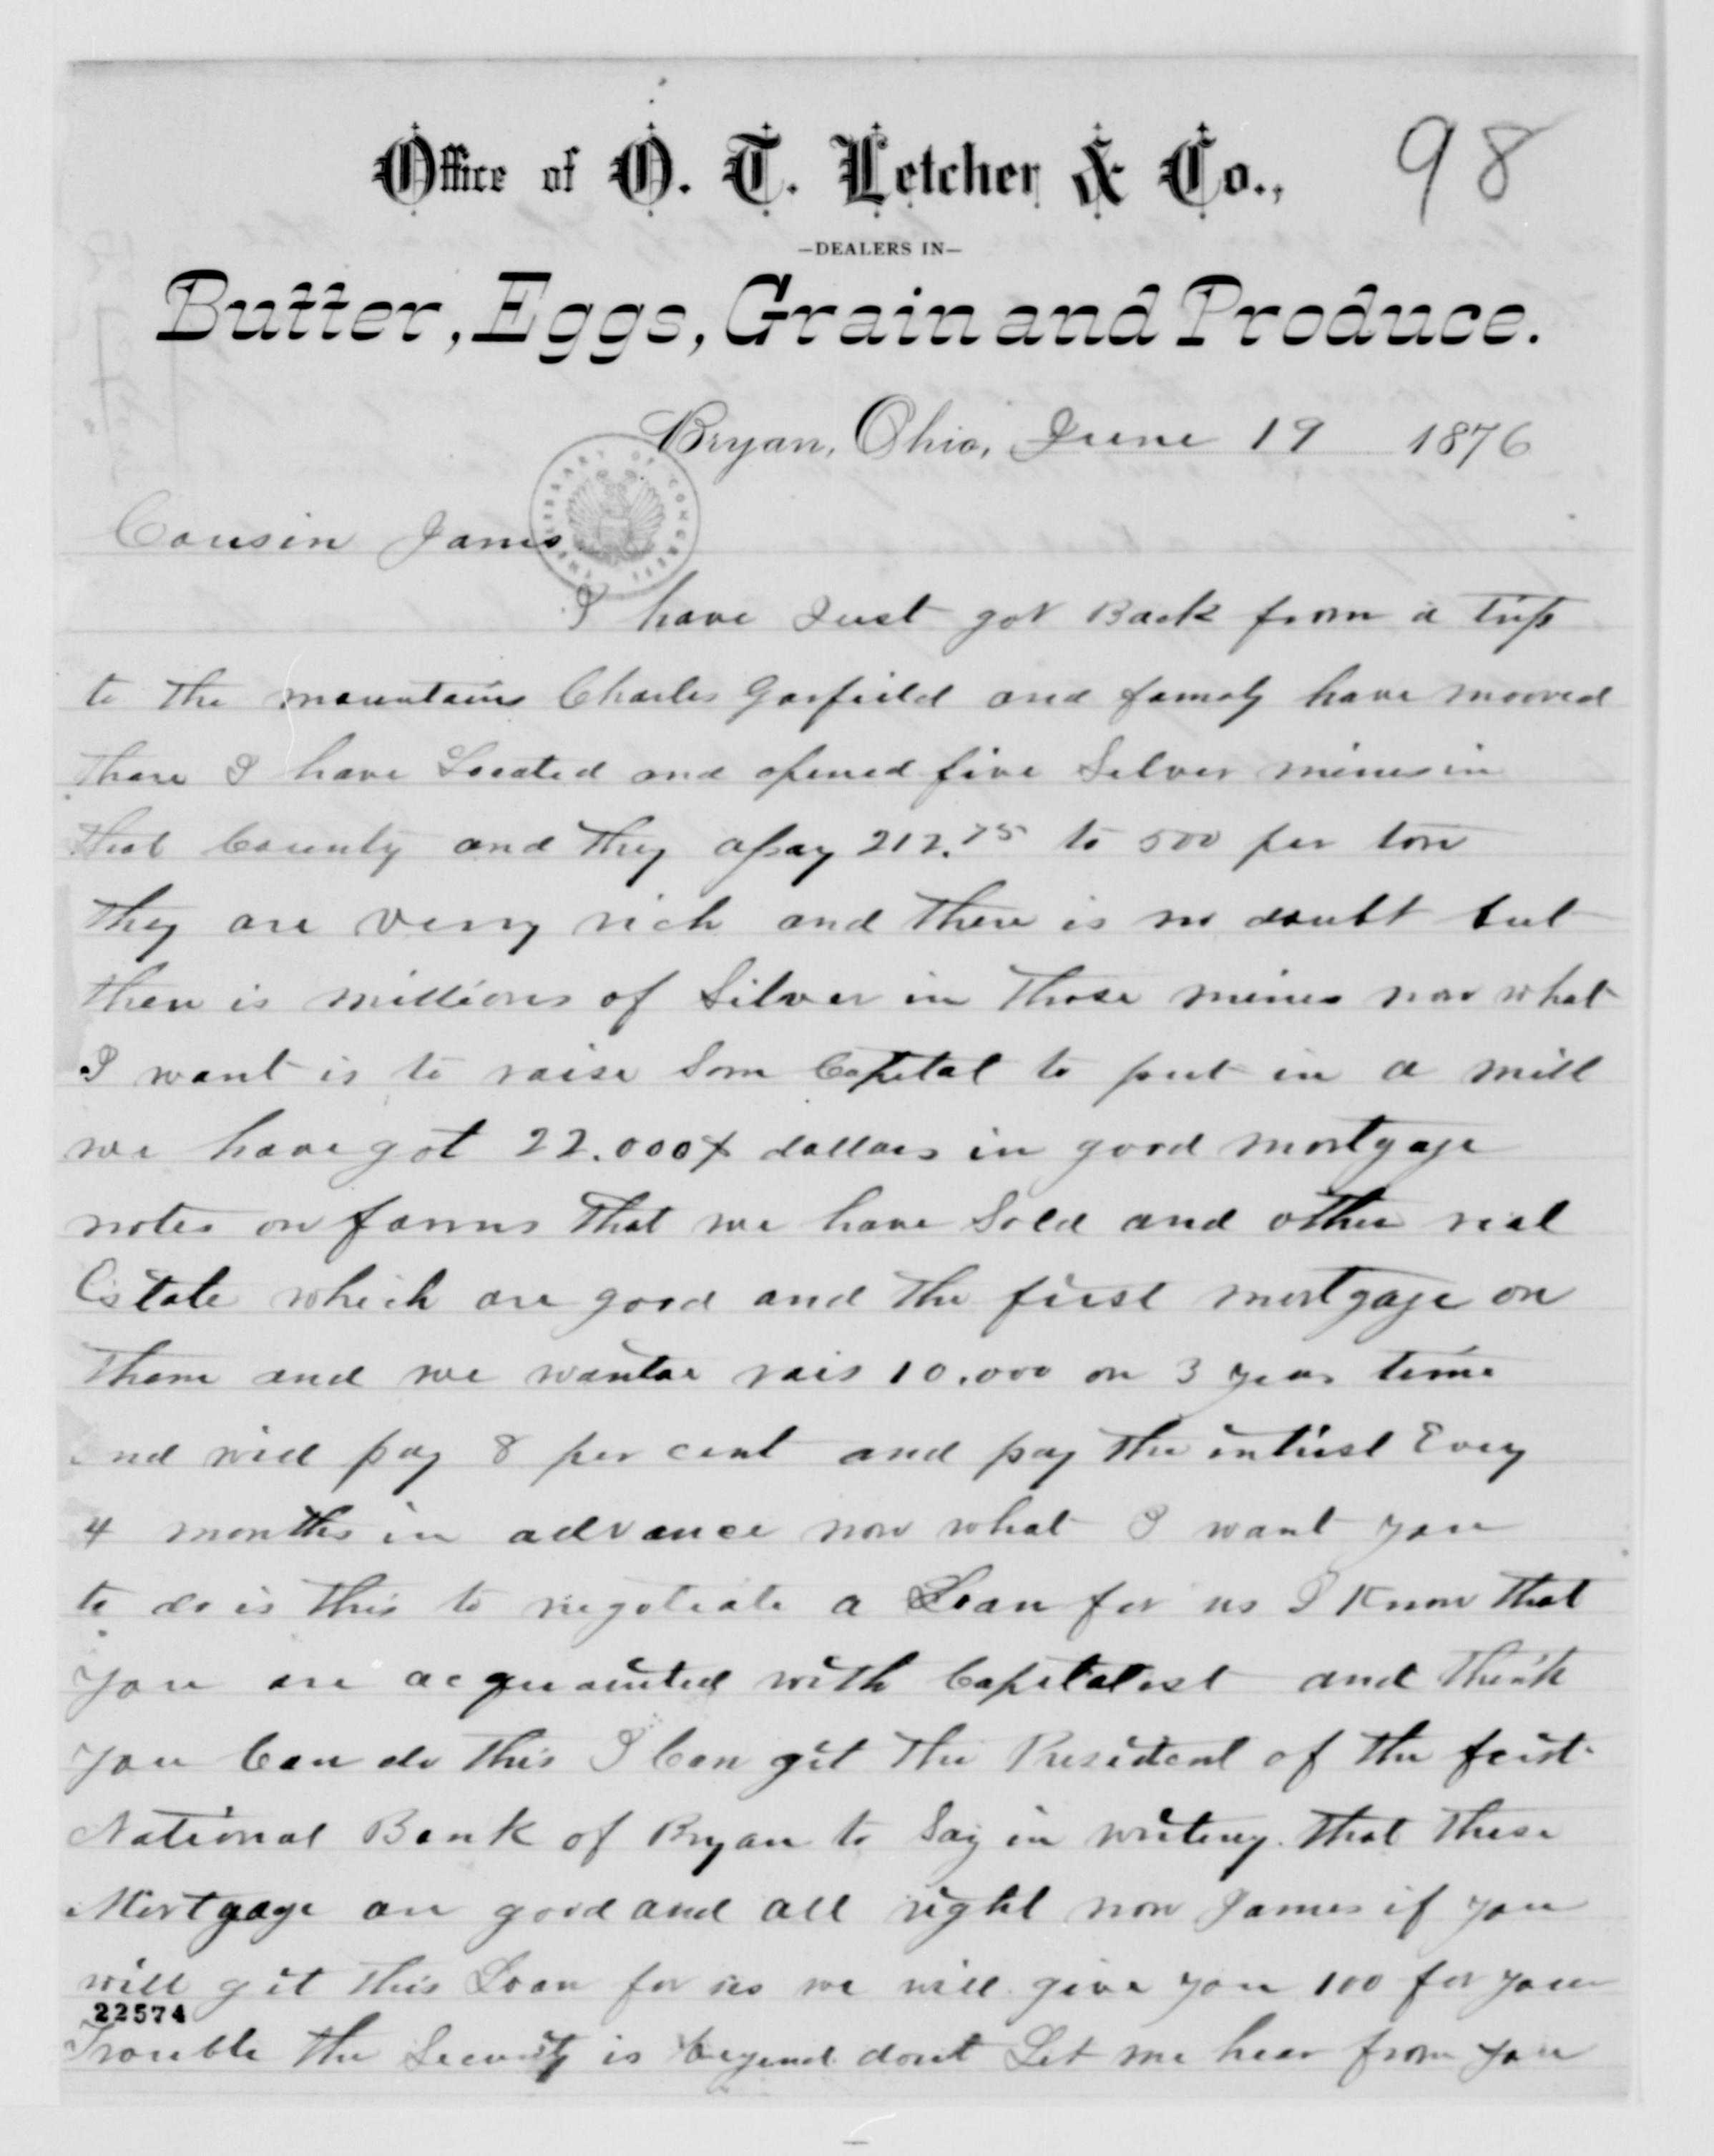 Office of O. T. Letcher & Co.,
98
—DEALERS IN—
Butter, Eggs, Grain and Produce.
Bryan, Ohio, June 19 1876
THE LIBRARY OF CONGRESS
Cousin James
I have Just got Back from a trip
to the mountains Charles Garfield and famaly have mooved
thare I have Located and opened five Silver mines in
that County and they assay 212.75 to 500 per ton
they are verry rich and there is no doubt but
there is millions of Silver in those mines now what
I want is to raise Som Capital to put in a mill
we have got 22.000 dollars in good mortgage
notes on farms that we have Sold and other real
Estate which are good and the first mortgage on
them and we wantae rais 10.000 on 3 years time
and will pay 8 per cent and pay the intrist Evry
4 months in advance now what I want you
to do is this to negotiate a Loan for us I Know that
you are acquainted with Capitalist and think
you Can do this I Can git the President of the first
National Bank of Bryan to Say in writing that these
Mortgage are good and all right now James if you
will git this Loan for us we will give you 100 for your
22574
Trouble the Security is beyend dout Let me hear from you